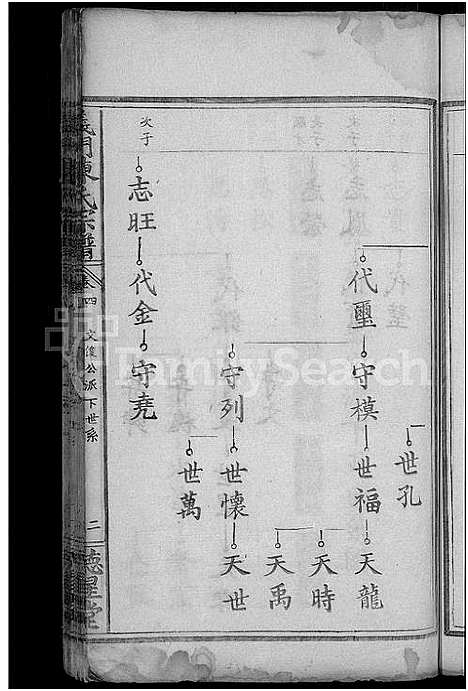 世孔
代璽 守模 世福 天龍
天時
天禹
守列 世懷 天世
世萬
次子 志旺 代金 守堯
義門陳氏宗譜 卷四 文俊公派下世系 二 德星堂
FamilySearch